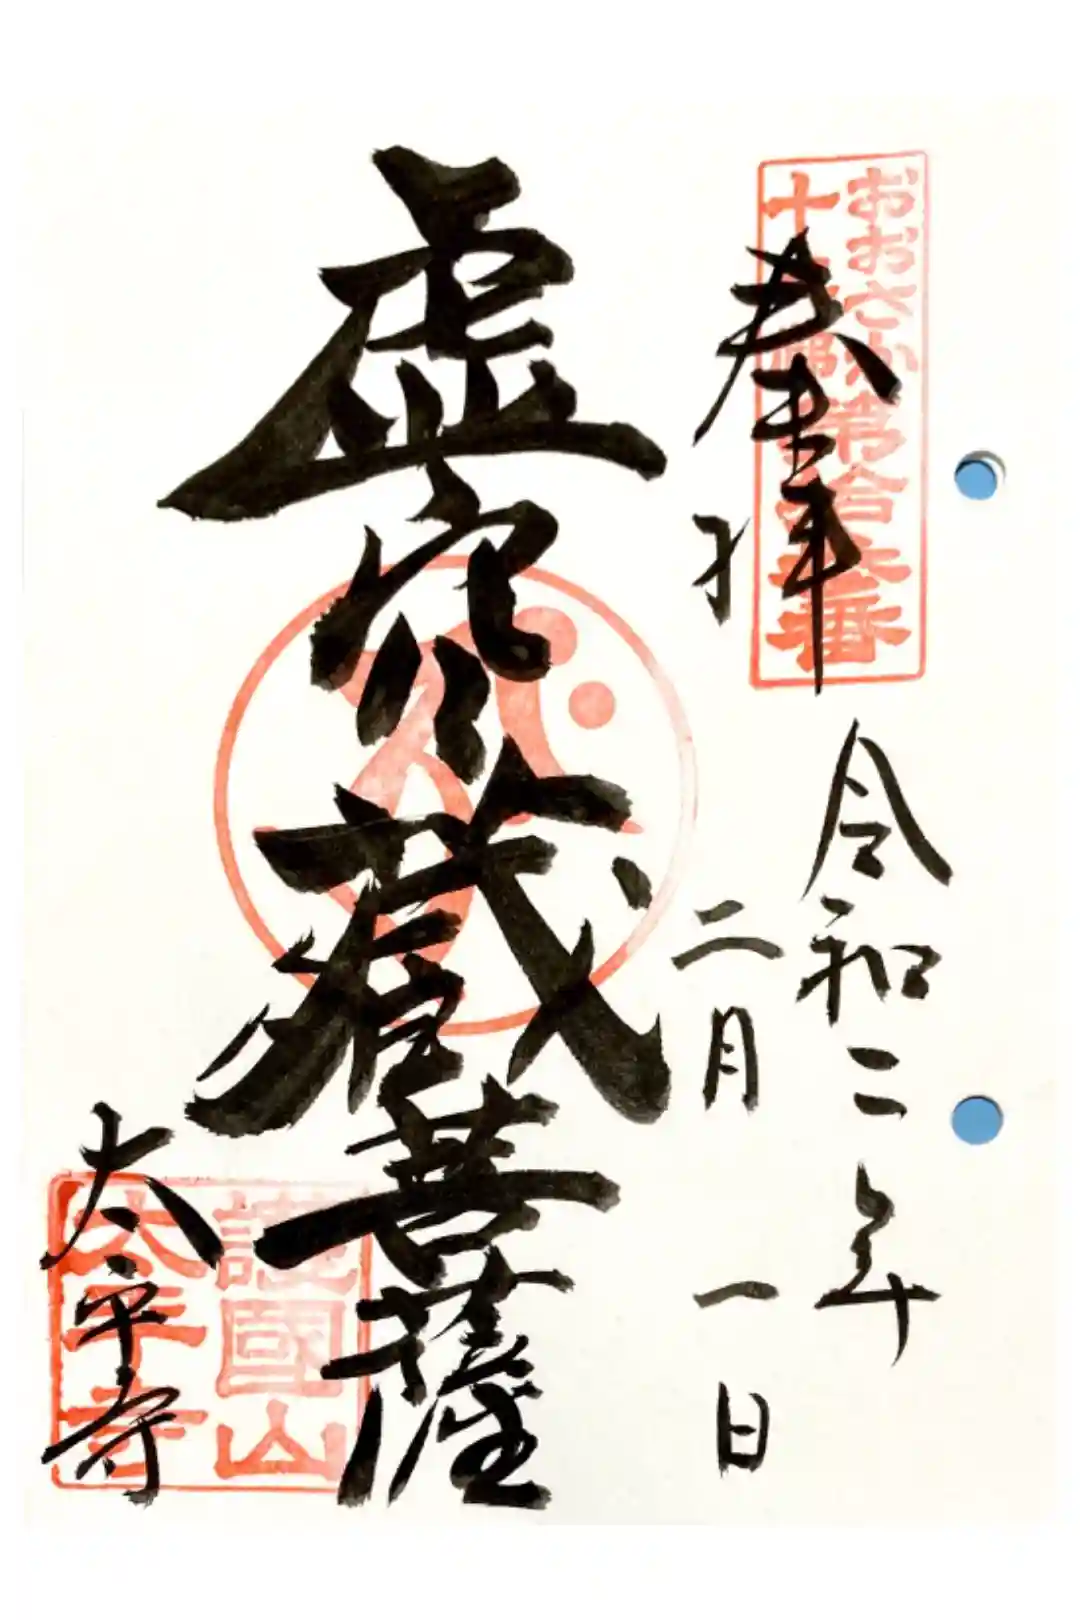 おおさか
十三佛
第拾三番
奉拝
令和二年
二月一日
虚空蔵菩薩
太平寺
護國山
太平寺